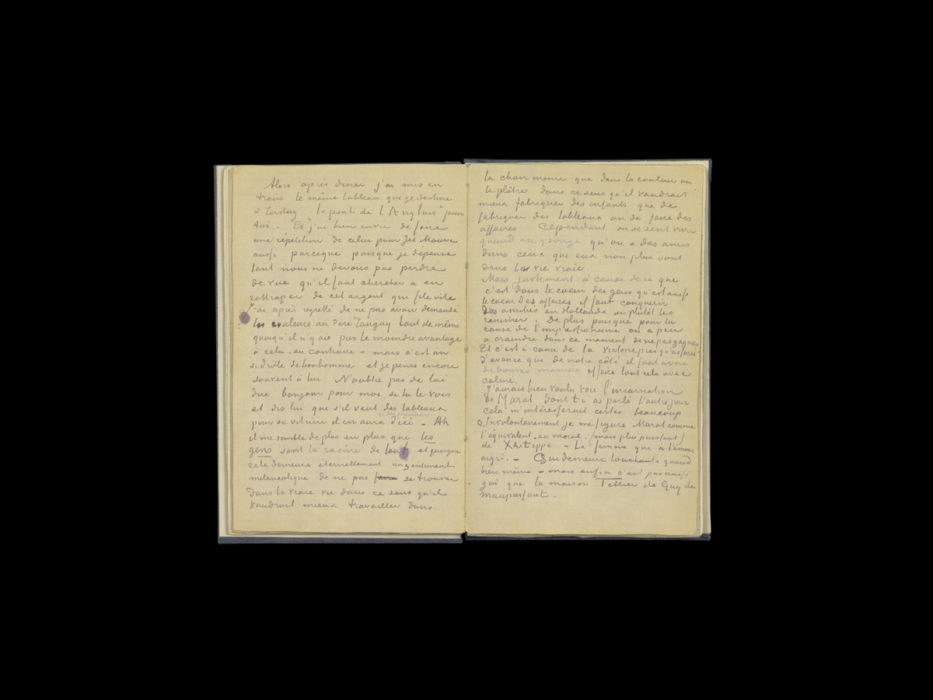 Alors après diner j'ai mis en
train le même tableau que je destine
à Tersteeg "le pont de l'Anglais" pour
toi. Et j'ai bien envie de faire
une répétition de celui pour Jet Mauve
aussi parceque puisque je dépense
tant nous ne devons pas perdre
de vue qu'il faut chercher à en
rattraper de cet argent qui file vite
J'ai après regretté de ne pas avoir demandé
les couleurs au Père Tanguy tout de même
quoiqu'il n'y ait pas le moindre avantage
à cela – au contraire – mais c'est un
si drôle de bonhomme et je pense encore
souvent à lui N'oublie pas de lui
dire bonjour pour moi si tu le vois
et dis lui que s'il veut des tableaux
pour sa vitrine il en aura d'ici – Ah
il me semble de plus en plus que les
gens sont la racine de tout et quoique
cela demeure eternellement un sentiment
mélancolique de ne pas se trouver
dans la vraie vie dans ce sens qu'il
vaudrait mieux travailler dans
la chair même que dans la couleur ou
le plâtre dans ce sens qu'il vaudrait
mieux fabriquer des enfants que de
fabriquer des tableaux ou de faire des
affaires Cependant on se sent vivre
quand on y songe qu'on a des amis
dans ceux que eux non plus sont
dans la vie vraie.
Mais justement à cause de ce que
c'est dans le coeur des gens qu'est aussi
le coeur des affaires il faut conquérir
des amitiés en Hollande ou plutôt les
ranimer. De plus puisque pour la
cause de l'impressionisme on a peu
à craindre dans ce moment de ne pas gagner
Et c'est à cause de la victoire presqu'assurée
d'avance que de notre côté il faut avoir
de bonnes manières et faire tout cela avec
calme.
J'aurais bien voulu voir l'incarnation
de Marat dont tu as parlé l'autre jour
cela m'intéresserait certes beaucoup
Involontairement je me figure Marat comme
l'équivalent au moral (mais plus puissant)
de Xantippe – La femme qui a l'amour
aigri. – Qui demeure touchante quand
bien même – mais enfin c'est pas aussi
gai que la maison Tellier de Guy de
Maupassant.